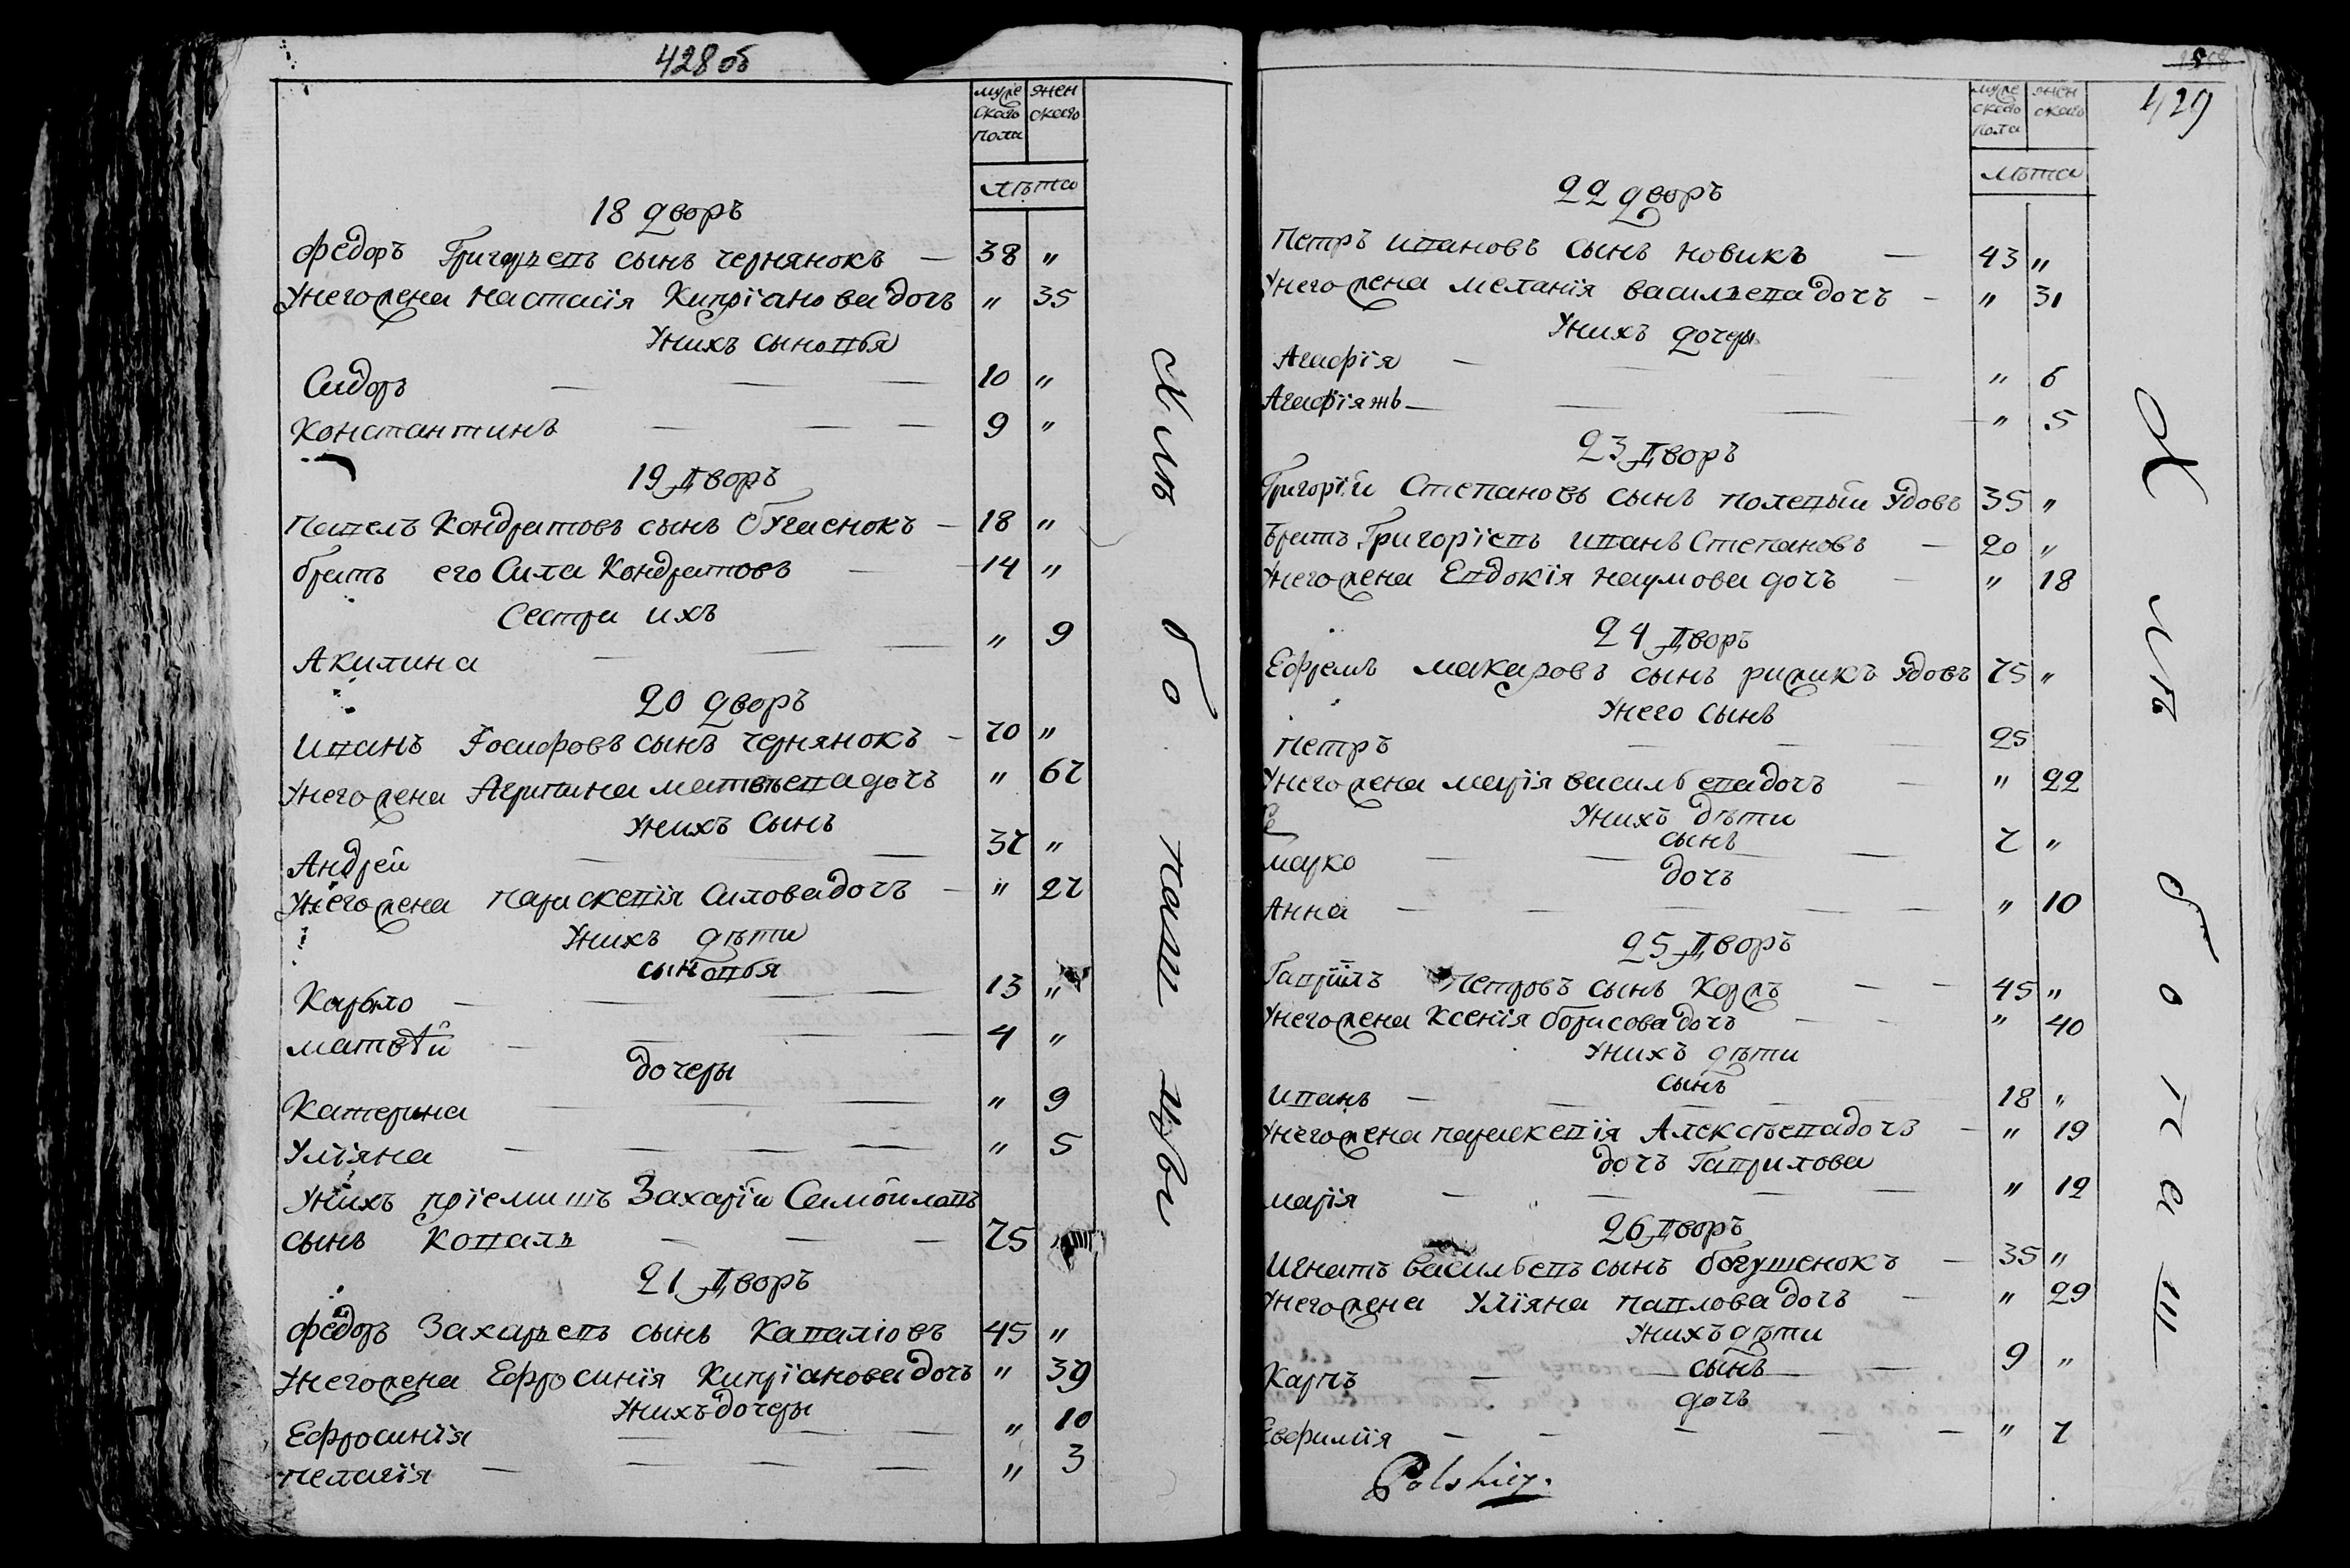 428 об
мужескаго пола
женскаго
лѣта
18 дворъ
Федоръ Григорьевъ сынъ чернянокъ — 38 "
У него жена Настасія Кипріанова дочъ " 35
У нихъ сыновья
Сидоръ — 10 "
Константинъ — 9 "
19 Дворъ
Павелъ Кондратовъ сынъ — 18 "
братъ его Сила Кондратовъ — 14 "
Сестра ихъ
Акилина — " 9
20 дворъ
Иванъ Іосифовъ сынъ чернянокъ — 70 "
У него жена Агрипина матвѣева дочъ " 67
У нихъ Сынъ
Андрей — 37 "
У него жена параскевія Силова дочъ — " 27
У нихъ дѣти
сыновья
Карбло — 13 "
матвѣй — 4 "
дочеры
Катерина — " 9
Уліяна — " 5
У нихъ пріемишъ Захарій Самойловъ
сынъ Коваль — 75
21 Дворъ
Федоръ Захарьевъ сынъ Каваліовъ 45 "
У него жена Ефросинія Кипріанова дочъ " 39
У нихъ дочеры
Ефросинія — " 10
пелагія — " 3
Хлѣ бо паш цы
429
мужескаго пола
женскаго
лѣта
22 дворъ
петръ ивановъ сынъ новикъ — 43 "
У него жена меланія васильева дочъ — " 31
У нихъ дочеры
Агафія — " 6
Агафія жъ — " 5
23 Дворъ
Григорій Степановъ сынъ полевый Удовъ 35 "
Братъ Григоріевъ иванъ Степановъ — 20 "
У него жена Евдокія наумова дочъ — " 18
24 Дворъ
Ефремъ макаровъ сынъ рижикъ Удовъ 75 "
У него Сынъ
петръ — 25
У него жена марія васильева дочъ — " 22
У нихъ дѣти
сынъ
марко — 7 "
дочъ
Анна — " 10
25 Дворъ
Гавріилъ Петровъ сынъ Коржъ — 45 "
У него жена Ксенія борисова дочъ — " 40
У нихъ дѣти
сынъ
иванъ — 18 "
У него жена параскевія Алексѣева дочъ — " 19
дочъ Гаврилова
марія — " 12
26 Дворъ
Игнатъ васильевъ сынъ богушенокъ — 35 "
У него жена Уліяна павлова дочъ — " 29
У нихъ дѣти
сынъ
Карпъ — 9 "
дочъ
Евфимія — " 7
Хлѣ бо па ш